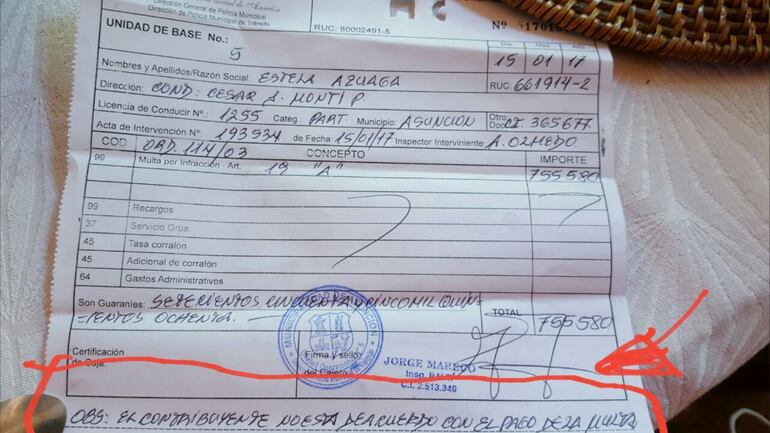 Dirección General de Policía Municipal
Dirección de Policía Municipal de Tránsito
RUC: 80002491-5
UNIDAD DE BASE No.: 5
Día Mes Año
15 01 17
Nombres y Apellidos/Razón Social: ESTELA AZUAGA RUC: 661914-2
Dirección: COND: CESAR A. MONTI P.
Licencia de Conducir Nº: 1255 Categ: PART. Municipio: ASUNCION Otro Doc. CI. 365677
Acta de Intervención Nº: 193534 de Fecha: 15/01/17 Inspector Interviniente: A. OLMEDO.
COD ORD. 114/03 CONCEPTO IMPORTE
99 Multa por Infracción - Art. 19 "A" 755580
99 Recargos
37 Servicio Grúa
45 Tasa corralón
45 Adicional de corralón
64 Gastos Administrativos
Son Guaraníes: SETECIENTOS CINCUENTA Y CINCO MIL QUIN=
=IENTOS OCHENTA. TOTAL 755580
Certificación
de Caja:
Firma y sello
del Cajero
JORGE MARECO
C.I. 2.513.349
OBS: EL CONTRIBUYENTE NO ESTA DE ACUERDO CON EL PAGO DE LA MULTA